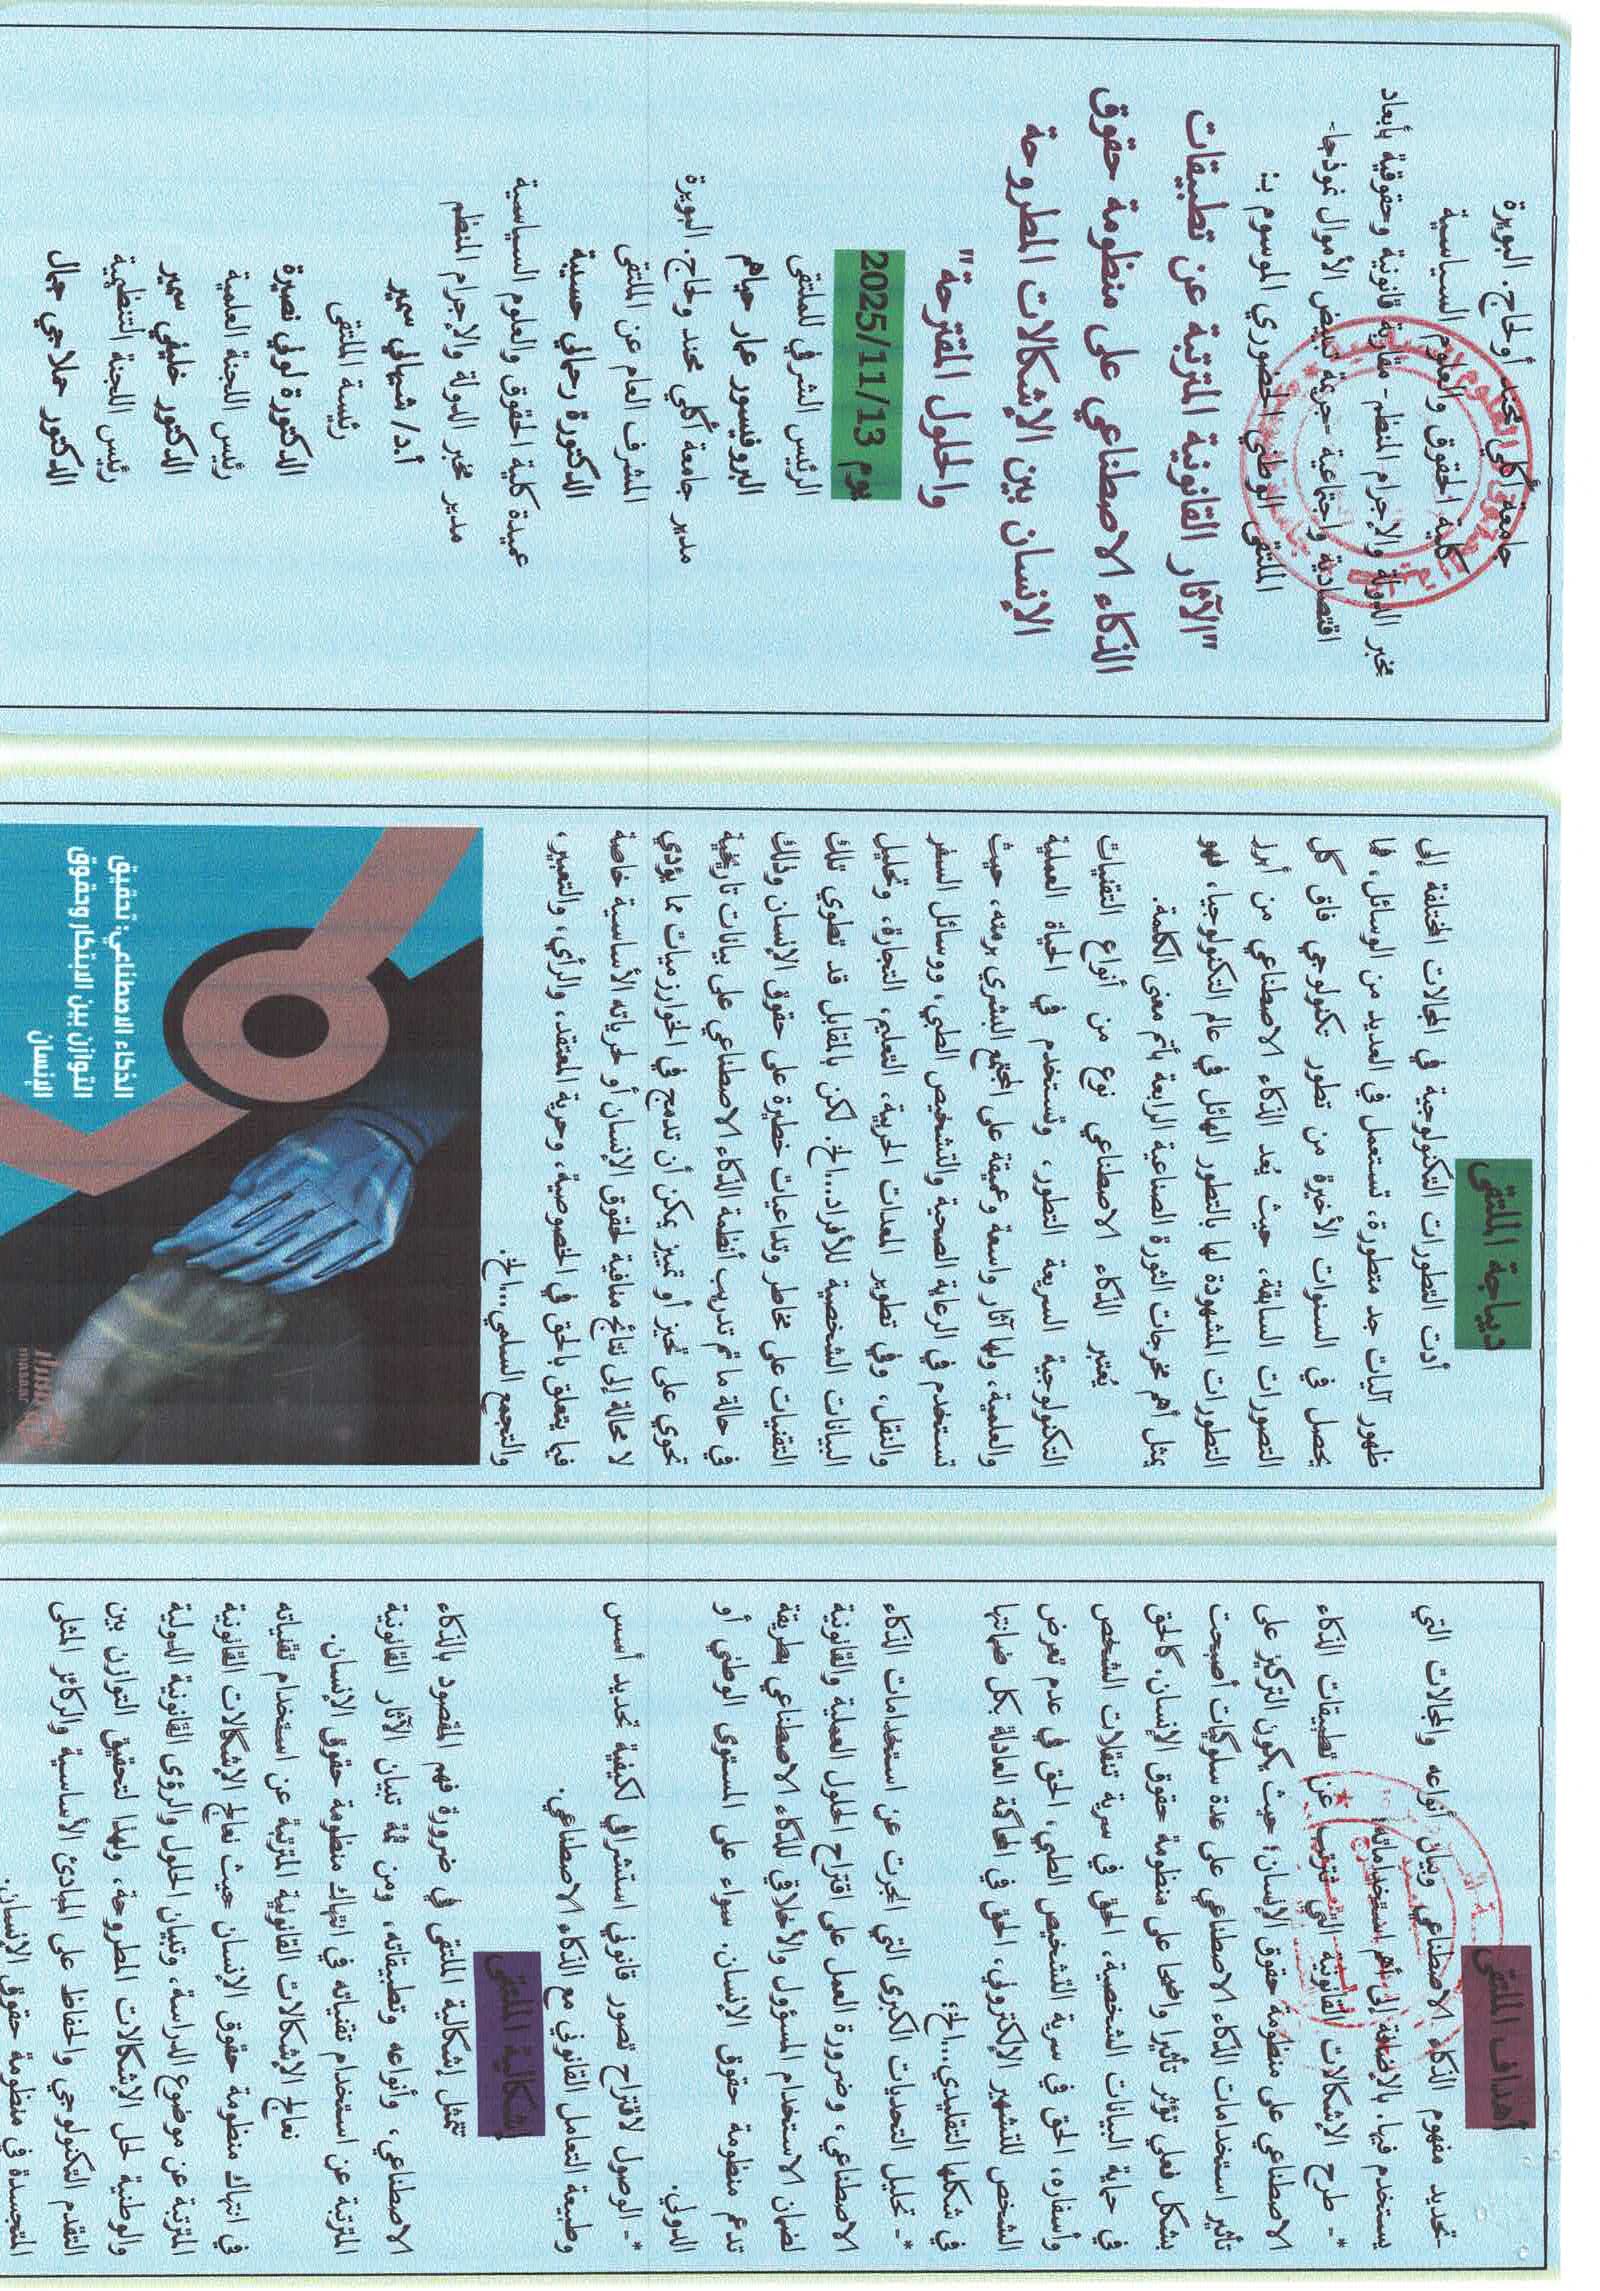 جامعة أكلي محند أولحاج. البويرة
كلية الحقوق والعلوم السياسية
مخبر الدولة والإجرام المنظم- مقاربة قانونية وحقوقية بأبعاد
اقتصادية واجتماعية جريمة تبييض الأموال نموذجا-
الملتقى الوطني الحضوري الموسوم بـ:
"الآثار القانونية المترتبة عن تطبيقات
الذكاء الاصطناعي على منظومة حقوق
الإنسان بين الإشكالات المطروحة
والحلول المقترحة"
يوم 2025/11/13
الرئيس الشرفي للملتقى
البروفيسور عمار حياهم
مدير جامعة أكلي محند ولحاج. البويرة
المشرف العام عن الملتقى
الدكتورة رحماني حسيبة
عميدة كلية الحقوق والعلوم السياسية
مدير مخبر الدولة والإجرام المنظم
أ.د/ شيهاني سمير
رئيسة الملتقى
الدكتورة لوني نصيرة
رئيس اللجنة العلمية
الدكتور خليفي سمير
رئيس اللجنة التنظيمية
الدكتور حملاجي جمال
ديباجة الملتقى
أدت التطورات التكنولوجية في المجالات المختلفة إلى
ظهور آليات جد متطورة، تستعمل في العديد من الوسائل، فما
يحصل في السنوات الأخيرة من تطور تكنولوجي فاق كل
التصورات السابقة، حيث يُعد الذكاء الاصطناعي من أبرز
التطورات المشهودة لها بالتطور الهائل في عالم التكنولوجيا، فهو
يمثل أهم مخرجات الثورة الصناعية الرابعة بأتم معنى الكلمة.
يُعتبر الذكاء الاصطناعي نوع من أنواع التقنيات
التكنولوجية السريعة التطور، وتستخدم في الحياة العملية
والعلمية، ولها آثار واسعة وعميقة على المجتمع البشري برمته، حيث
تستخدم في الرعاية الصحية والتشخيص الطبي، ووسائل السفر
والنقل، وفي تطوير المعدات الحربية، التعليم، التجارة، وتحليل
البيانات الشخصية للأفراد...الخ. لكن بالمقابل قد تطوي تلك
التقنيات على مخاطر وتداعيات خطيرة على حقوق الإنسان وذلك
في حالة ما تم تدريب أنظمة الذكاء الاصطناعي على بيانات تاريخية
تحوي على تحيز أو تمييز يمكن أن تدمج في الخوارزميات مما يؤدي
لا محالة إلى نتائج منافية لحقوق الإنسان أو لحرياته الأساسية خاصة
فيما يتعلق بالحق في الخصوصية، وحرية المعتقد، والرأي، والتعبير،
والتجمع السلمي...الخ.
الذكاء الاصطناعي: تحقيق
التوازن بين الابتكار وحقوق
الإنسان
مسار
massar
أهداف الملتقى
-تحديد مفهوم الذكاء الاصطناعي وبيان أنواعه والمجالات التي
يستخدم فيها، بالإضافة إلى أهم استخداماته؛
*- طرح الإشكالات القانونية التي تترتب عن تطبيقات الذكاء
الاصطناعي على منظومة حقوق الإنسان؛ حيث يكون التركيز على
تأثير استخدامات الذكاء الاصطناعي على عدة سلوكيات أصبحت
بشكل فعلي تؤثر تأثيرا واضحا على منظومة حقوق الإنسان. كالحق
في حماية البيانات الشخصية، الحق في سرية تنقلات الشخص
وأسفاره، الحق في سرية التشخيص الطبي، الحق في عدم تعرض
الشخص للتشهير الإلكتروني، الحق في المحاكمة العادلة بكل ضماناتها
في شكلها التقليدي...الخ؛
*- تحليل التحديات الكبرى التي انجرت عن استخدامات الذكاء
الاصطناعي، وضرورة العمل على اقتراح الحلول العملية والقانونية
لضمان الاستخدام المسؤول والأخلاقي للذكاء الاصطناعي بطريقة
تدعم منظومة حقوق الإنسان. سواء على المستوى الوطني أو
الدولي.
*- الوصول لاقتراح تصور قانوني استشرافي لكيفية تحديد أسس
وطبيعة التعامل القانوني مع الذكاء الاصطناعي.
إشكالية الملتقى
تتمثل إشكالية الملتقى في ضرورة فهم المقصود بالذكاء
الاصطناعي، وأنواعه وتطبيقاته، ومن ثمة تبيان الآثار القانونية
المترتبة عن استخدام تقنياته في انتهاك منظومة حقوق الإنسان.
نعالج الإشكالات القانونية المترتبة عن استخدام تقنياته
في انتهاك منظومة حقوق الإنسان حيث نعالج الإشكالات القانونية
المترتبة عن موضوع الدراسة، وتبيان الحلول والرؤى القانونية الدولية
والوطنية لحل الإشكالات المطروحة، ولهذا لتحقيق التوازن بين
التقدم التكنولوجي والحفاظ على المبادئ الأساسية والركائز المثلى
المتجسدة في منظومة حقوق الإنسان.